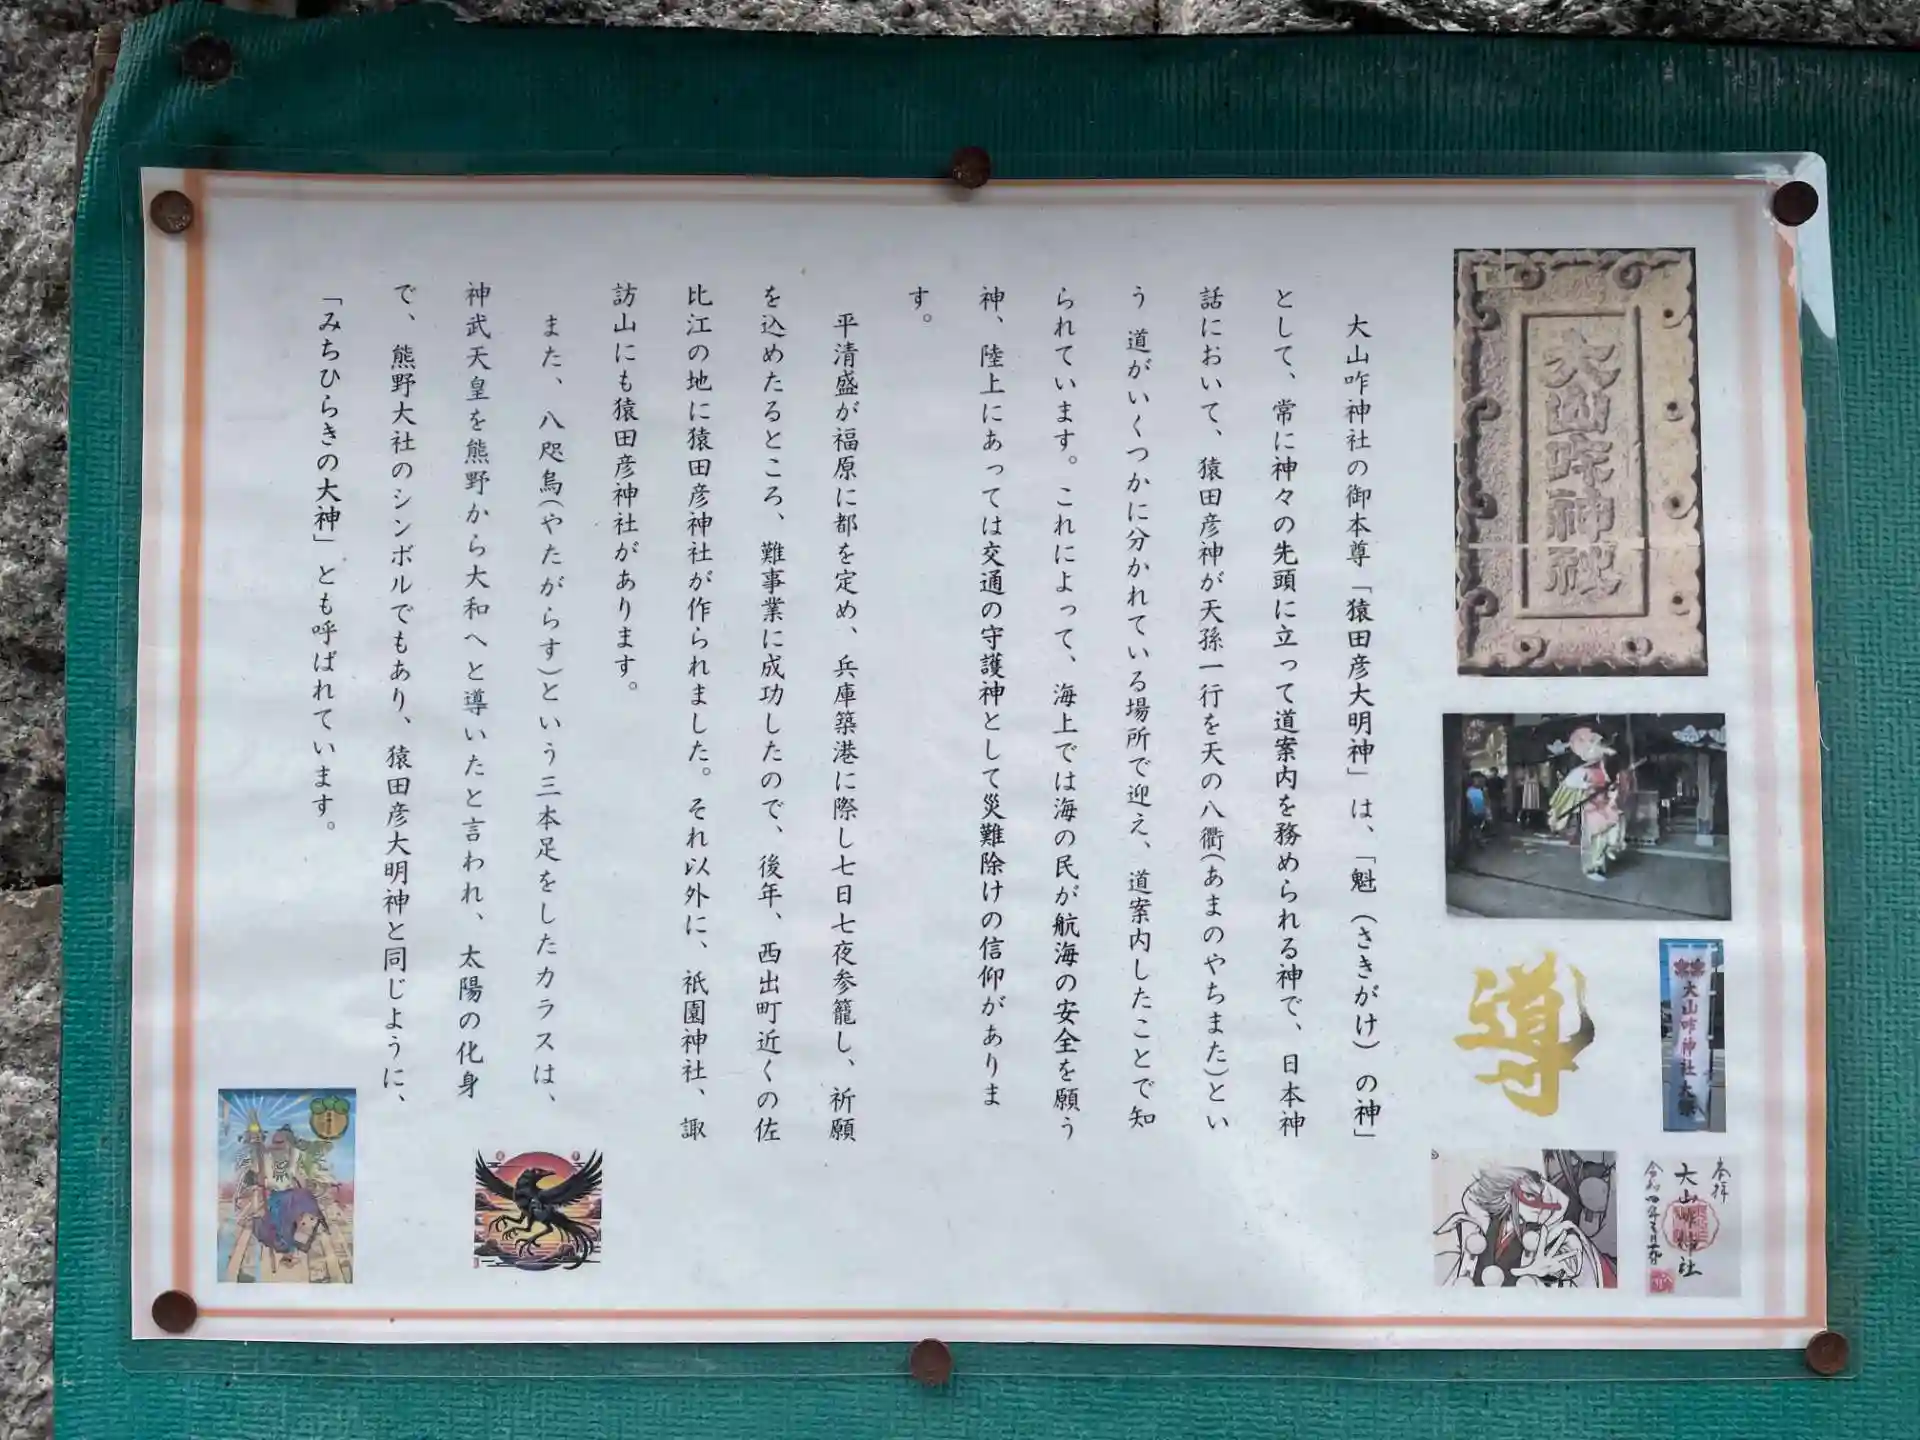 大山咋神社
大山咋神社の御本尊「猿田彦大明神」は、「魁（さきがけ）の神」
として、常に神々の先頭に立って道案内を務められる神で、日本神
話において、猿田彦神が天孫一行を天の八衢(あまのやちまた)とい
う 道がいくつかに分かれている場所で迎え、道案内したことで知
られています。これによって、海上では海の民が航海の安全を願う
神、陸上にあっては交通の守護神として災難除けの信仰がありま
す。
平清盛が福原に都を定め、兵庫築港に際し七日七夜参籠し、祈願
を込めたるところ、難事業に成功したので、後年、西出町近くの佐
比江の地に猿田彦神社が作られました。それ以外に、祇園神社、諏
訪山にも猿田彦神社があります。
また、八咫烏(やたがらす)という三本足をしたカラスは、
神武天皇を熊野から大和へと導いたと言われ、太陽の化身
で、熊野大社のシンボルでもあり、猿田彦大明神と同じように、
「みちひらきの大神」とも呼ばれています。
導
大山咋神社大祭
本拝
大山咋神社